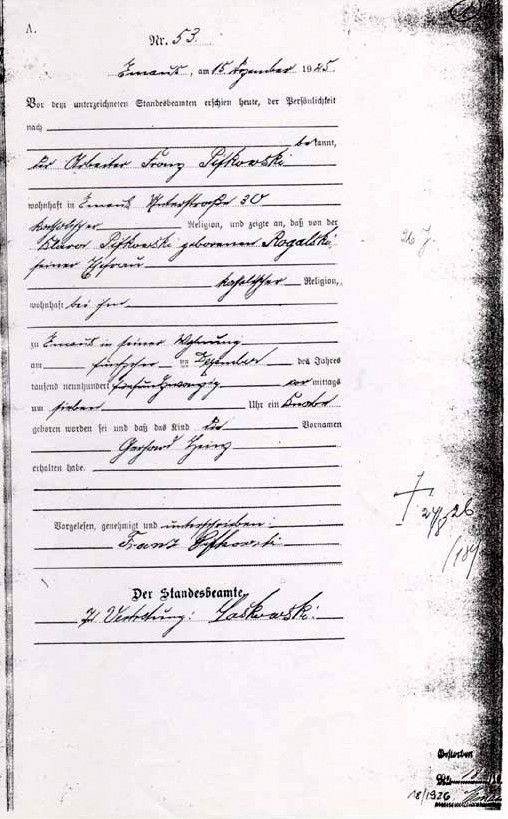 A.
Nr. 53.
Emaus, am 15 Dezember 1925.
Vor dem unterzeichneten Standesbeamten erschien heute, der Persönlichkeit
nach
bekannt,
der Arbeiter Franz
wohnhaft in Emaus Unterstraße 30
katholischer Religion, und zeigte an, daß von der
Klara geborenen Rogalski,
seiner Ehefrau
katholischer Religion,
wohnhaft bei ihm
zu Emaus in seiner Wohnung
am des Dezember des Jahres
tausend neunhundert fünfundzwanzig vormittags
um sieben Uhr ein Knabe
geboren worden sei und daß das Kind die Vornamen
Gerhard Heinz
erhalten habe.
Vorgelesen, genehmigt und unterschrieben:
Franz
Der Standesbeamte
In Vertretung: Laskowski.
26 J.
Gestorben
18/1926